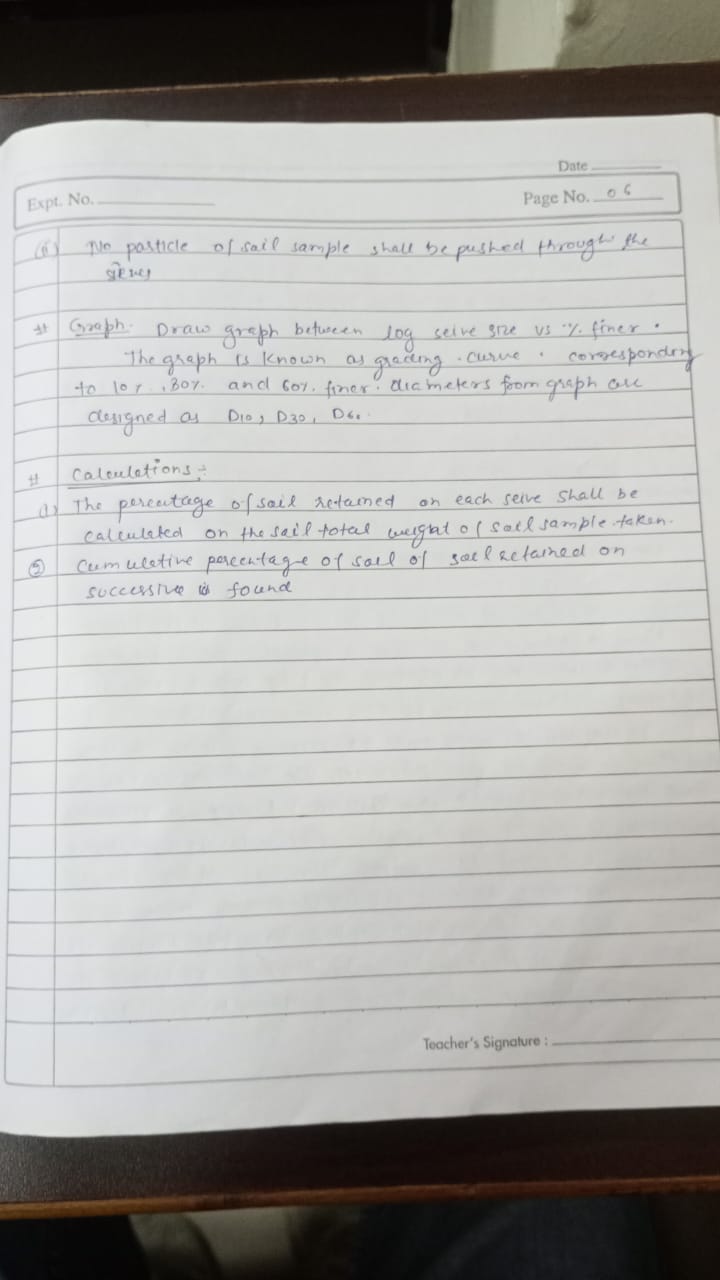 Date
Expt. No.
Page No. 06
(6) No particle of soil sample shall be pushed through the
sieves
# Graph. Draw graph between log seive size vs % finer.
The graph is known as grading curve. corresponding
to 10%, 30% and 60% finer. diameters from graph are
designed as D10, D30, D60.
# Calculations :-
(1) The percutage of soil retained on each seive shall be
calculated on the soil total weight of soil sample taken.
(2) Cumulative percentage of soil of soil retained on
successive is found
Teacher's Signature :